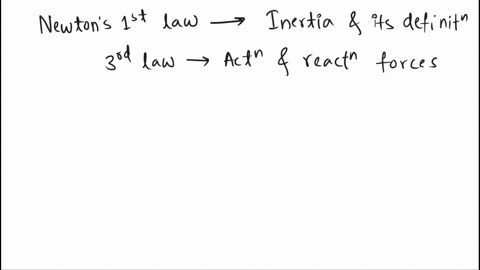 Newton's 1st law → Inertia & its definitⁿ
3rd law → Actⁿ & reactⁿ forces